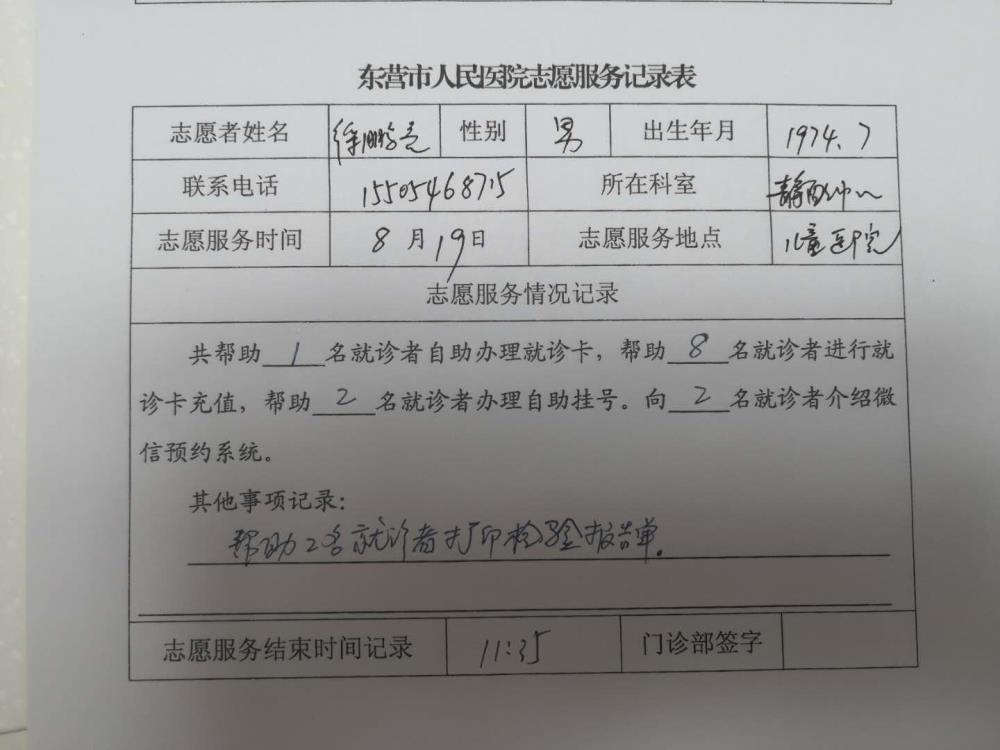 东营市人民医院志愿服务记录表
志愿者姓名 徐鹏亮 性别 男 出生年月 1974.7
联系电话 15505468715 所在科室 静配中心
志愿服务时间 8月19日 志愿服务地点 儿童医院
志愿服务情况记录
共帮助1名就诊者自助办理就诊卡，帮助8名就诊者进行就
诊卡充值，帮助2名就诊者办理自助挂号。向2名就诊者介绍微
信预约系统。
其他事项记录：
帮助2名就诊者打印检验报告单。
志愿服务结束时间记录 11:35 门诊部签字